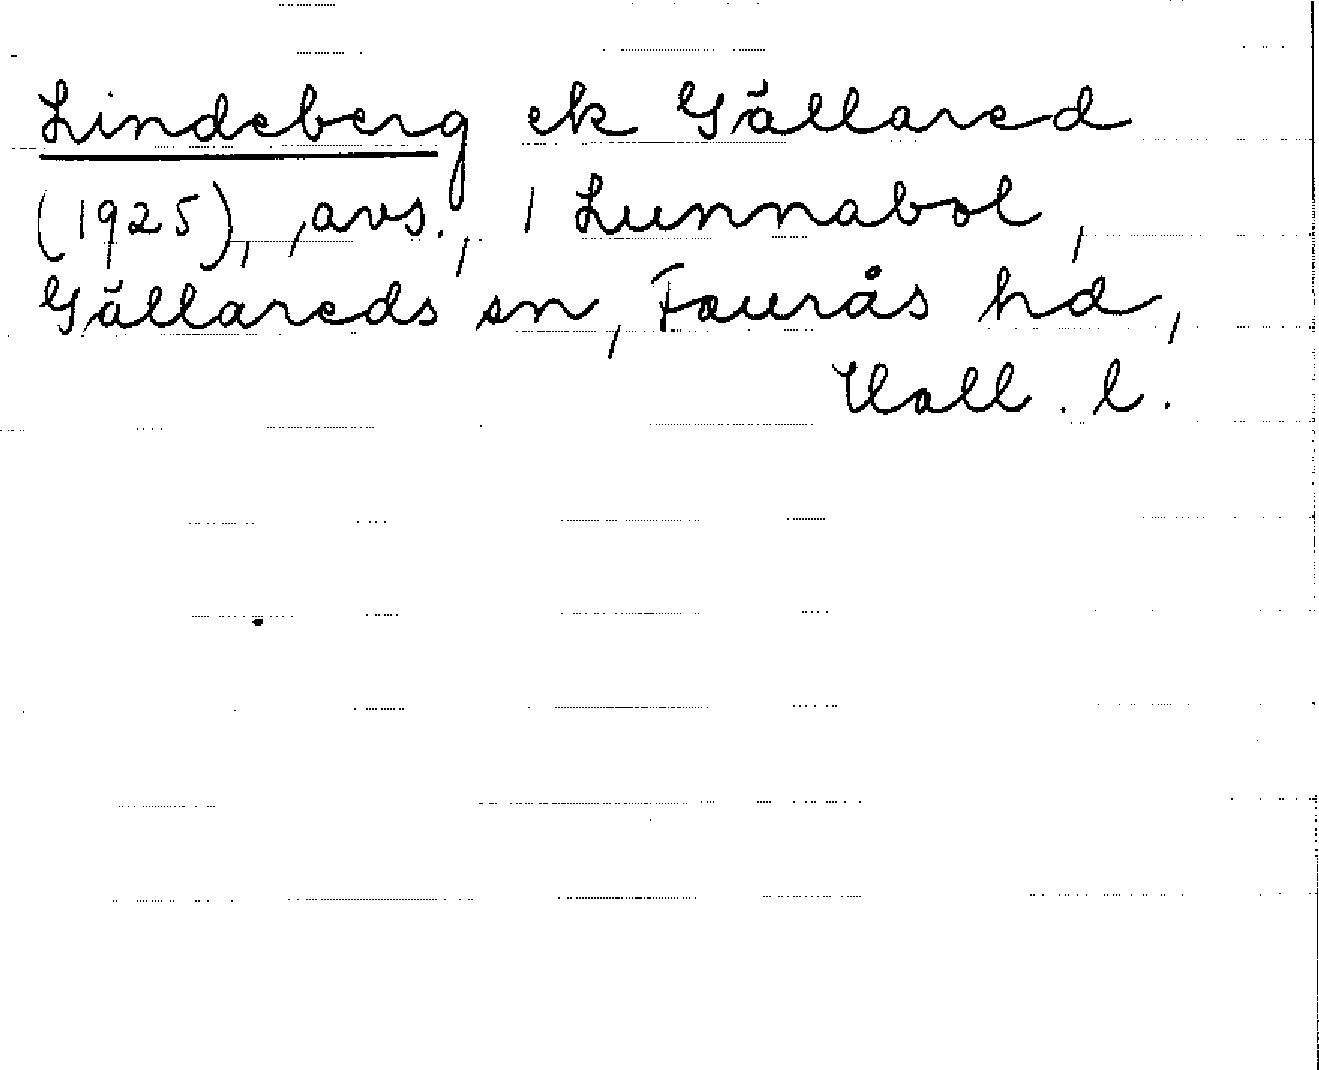 Lindeberg ek Gällared
(1925), avs., 1 Lunnabol,
Gällareds sn, Faurås hd,
Hall. l.